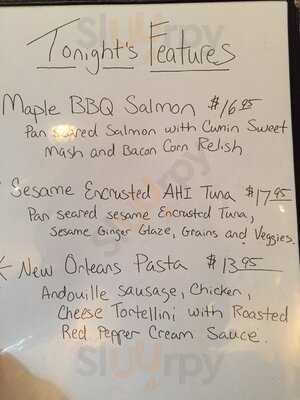 Tonight's Features
Maple BBQ Salmon $16.95
Pan seared Salmon with Cumin Sweet
Mash and Bacon Corn Relish
Sesame Encrusted AHI Tuna $17.95
Pan seared sesame Encrusted Tuna,
Sesame Ginger Glaze, Grains and Veggies.
New Orleans Pasta $13.95
Andouille sausage, Chicken,
Cheese Tortellini with Roasted
Red Pepper Cream Sauce.
Sluurpy
Sluurpy
Sluurpy